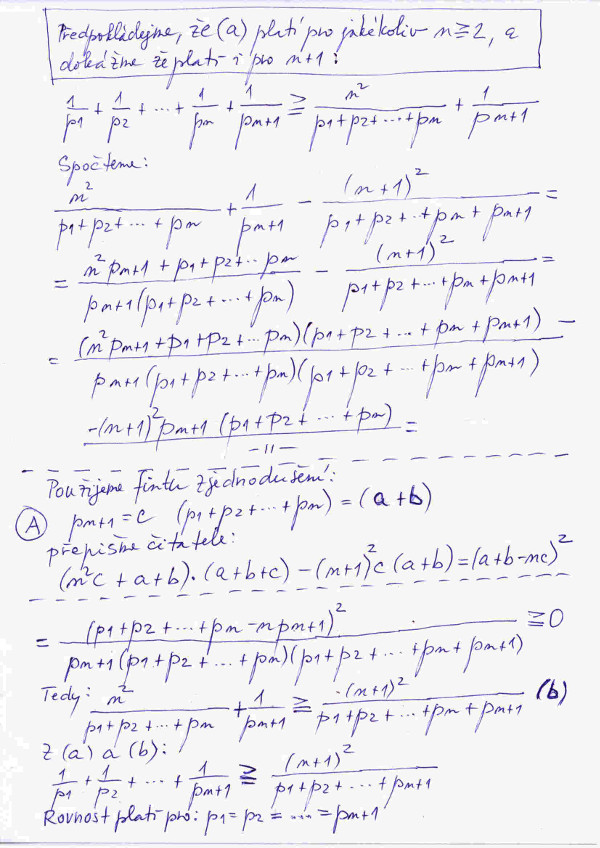 Předpokládejme, že (a) platí pro jakékoliv n ≧ 2, a
dokážme že platí i pro n+1:
1/p1 + 1/p2 + ... + 1/pn + 1/pn+1 ≧ n²/(p1+p2+...+pn) + 1/pn+1
Spočteme:
n²/(p1+p2+...+pn) + 1/pn+1 - (n+1)²/(p1+p2+..+pn+pn+1) =
= (n²pn+1 + p1+p2+...pn)/(pn+1(p1+p2+...+pn)) - (n+1)²/(p1+p2+...+pn+pn+1) =
= (n²pn+1+p1+p2+...pn)(p1+p2+...+pn+pn+1)/(pn+1(p1+p2+...+pn)(p1+p2+...+pn+pn+1)) -
-(n+1)²pn+1 (p1+p2+...+pn)/-11- =
Použijeme fintu zjednodušení:
(A) pn+1 = c (p1+p2+...+pn) = (a+b)
přepišme čitatele:
(n²c + a+b).(a+b+c) - (n+1)²c (a+b) = (a+b-nc)²
= (p1+p2+...+pn-npn+1)²/(pn+1(p1+p2+...+pn)(p1+p2+...+pn+pn+1)) ≧ 0
Tedy: n²/(p1+p2+...+pn) + 1/pn+1 ≧ -(n+1)²/(p1+p2+...+pn+pn+1) (b)
Z (a) a (b):
1/p1 + 1/p2 + ... + 1/pn+1 ≧ (n+1)²/(p1+p2+...+pn+1)
Rovnost platí pro: p1 = p2 = .... = pn+1